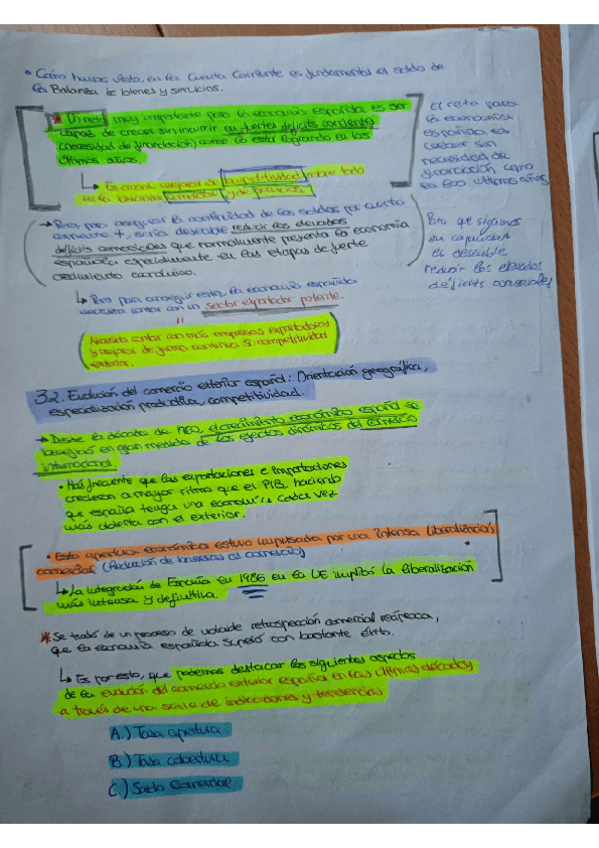 • Cómo hemos visto, en la Cuenta Corriente es fundamental el saldo de
la Balanza de bienes y servicios.
* Un reto muy importante para la economía española es ser
capaz de crecer sin incurrir en fuertes déficits corrientes
(necesidad de financiación) como lo está logrando en los
últimos años.
↳ Es crucial mejorar la competitividad sobre todo
en la balanza comercial y de servicios.
→ Pero, para asegurar la continuidad de los saldos por cuenta
corriente +, sería deseable reducir los elevados
déficits comerciales que normalmente presenta la economía
española especialmente en las etapas de fuerte
crecimiento económico.
↳ Pero para conseguir esto, la economía española
necesita contar con un sector exportador potente.
"
Necesita contar con más empresas exportadoras
y mejorar de forma continua su competitividad
exterior.
El reto para
la economía
española es
crecer sin
necesidad de
financiación como
en los últimos años
Para que sigamos
en capacidad
es deseable
reducir los elevados
déficits comerciales
3.2. Evolución del comercio exterior español: Orientación geográfica,
especialización productiva, competitividad.
→ Desde la década de 1960, el crecimiento económico español se
benefició en gran medida de los efectos dinámicos del comercio
internacional.
• Más frecuente que las exportaciones e importaciones
crecieron a mayor ritmo que el PIB, haciendo
que españa tenga una economía cada vez
más abierta con el exterior.
• Esta apertura económica estuvo impulsada por una intensa liberalización
comercial (Reducción de barreras al comercio)
↳ La integración de España en 1986 en la UE implicó la liberalización
más intensa y definitiva.
* Se trató de un proceso de retrospección comercial recíproca,
que la economía española superó con bastante éxito.
↳ Es por esto, que podemos destacar los siguientes aspectos
de la evolución del comercio exterior español en las últimas décadas
a través de una serie de indicadores y tendencias
A.) Tasa apertura.
B.) Tasa cobertura
C.) Saldo Comercial